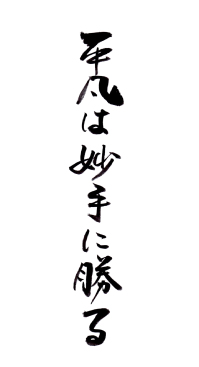 平凡は妙手に勝る